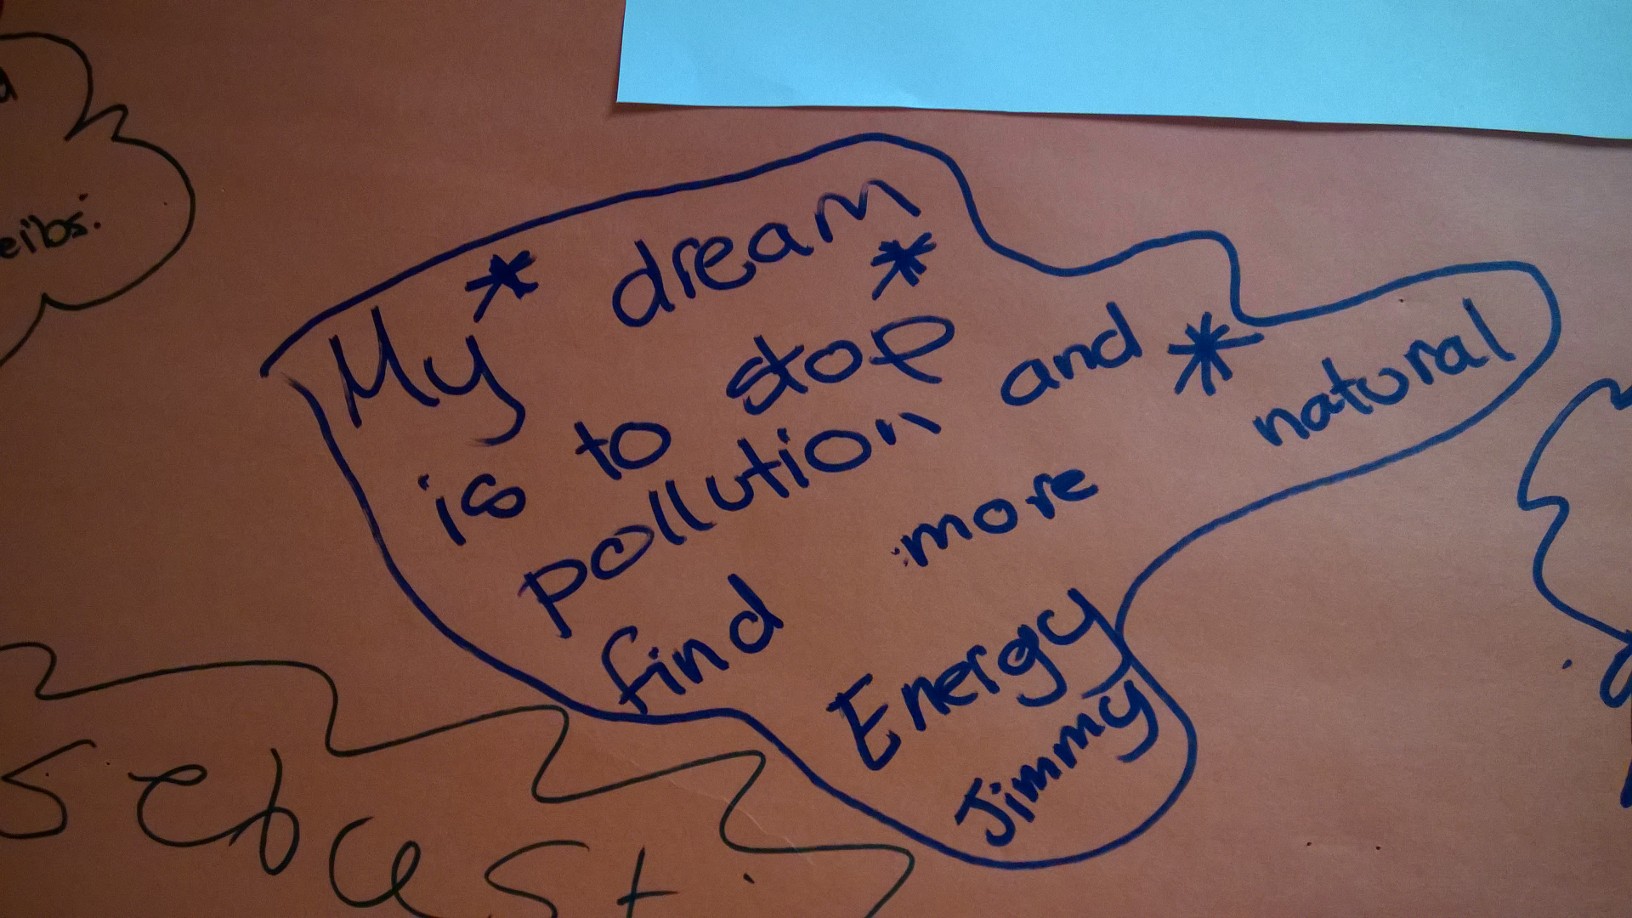 My * dream *
is to stop
pollution and *
find more natural
Energy
Jimmy